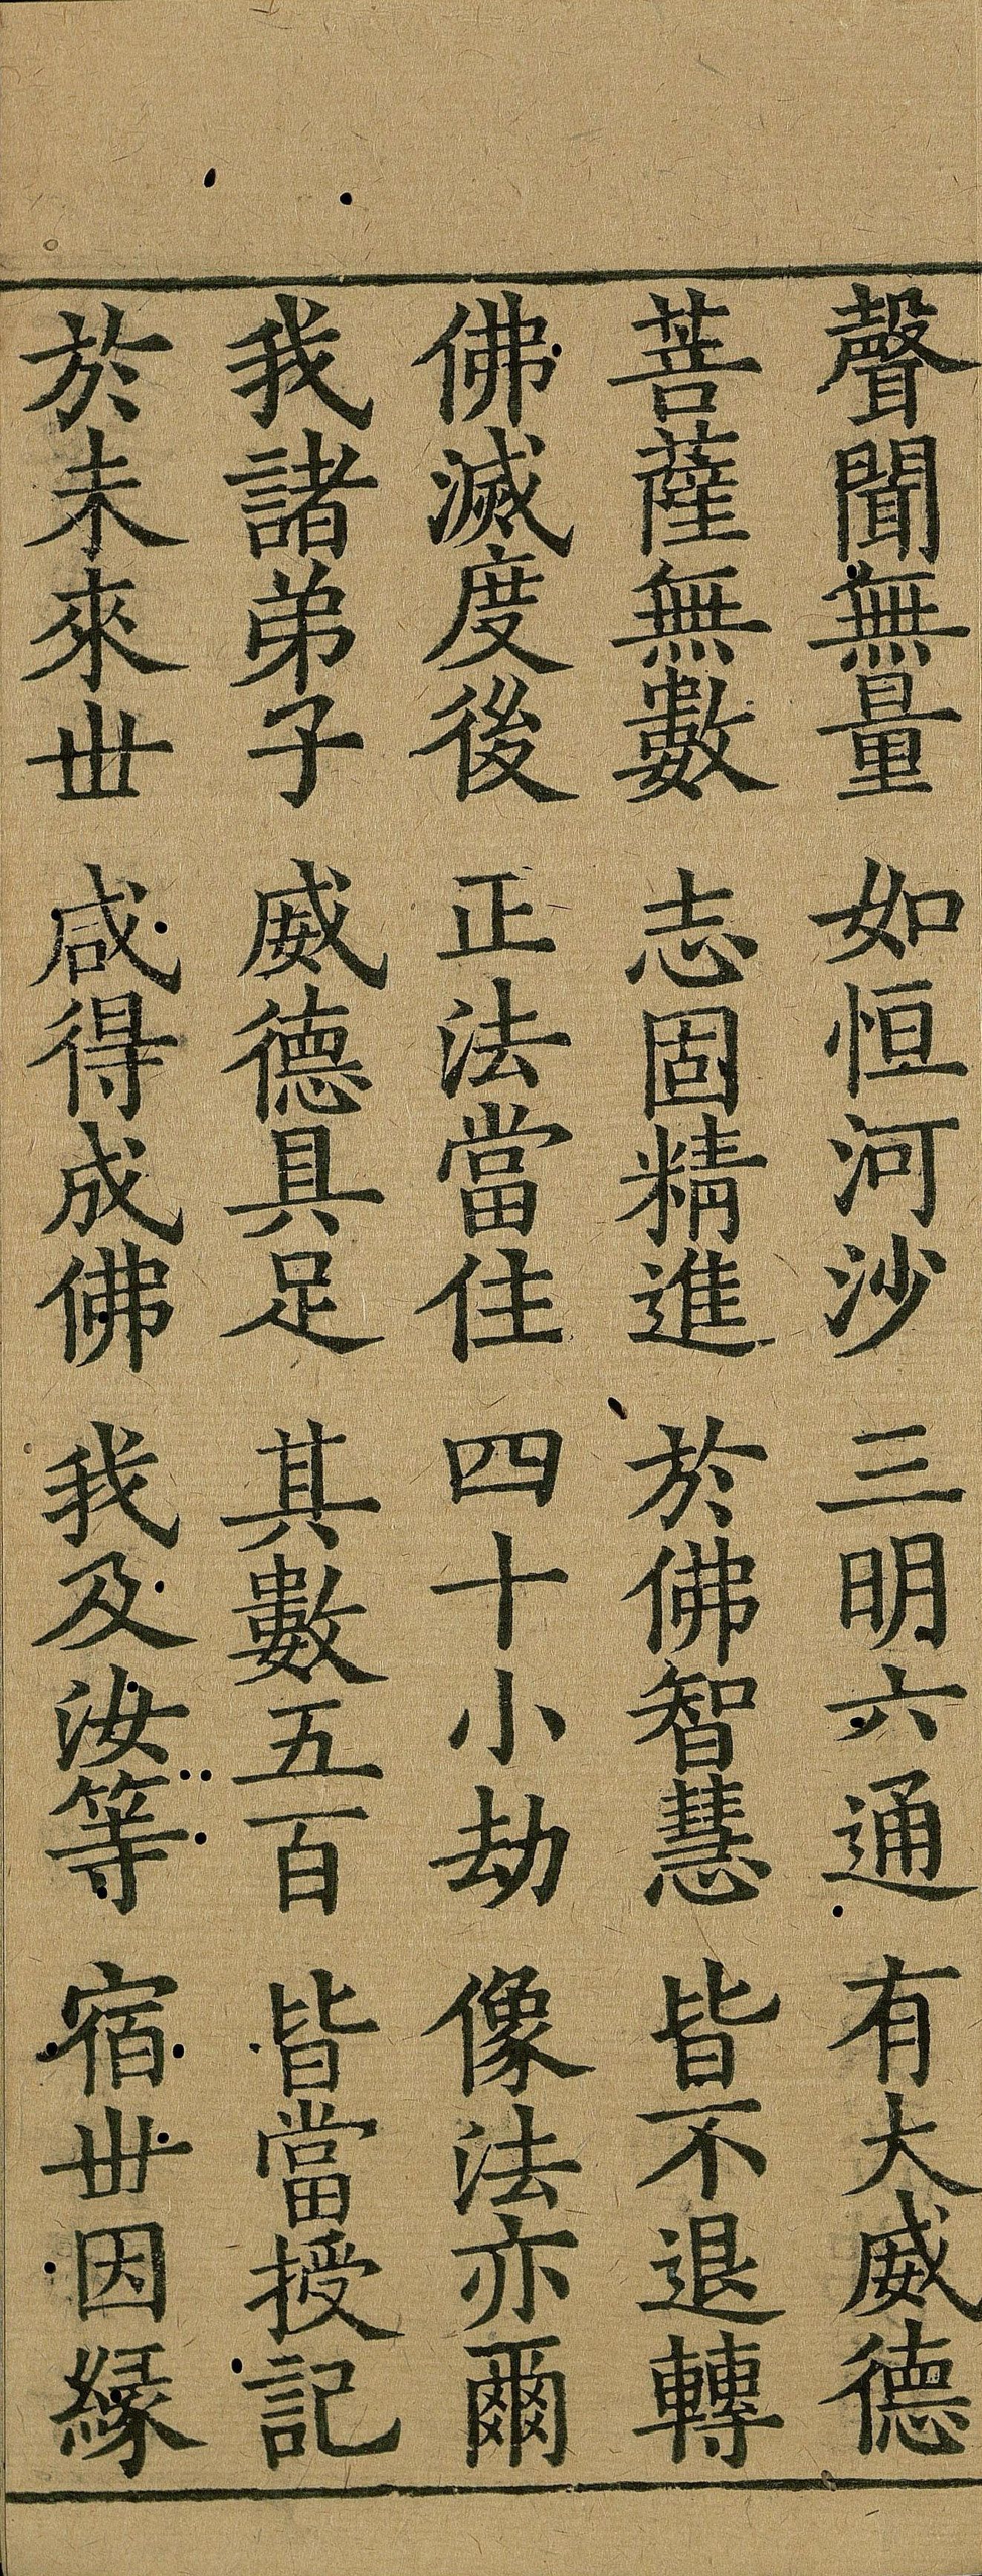 聲聞無量 如恒河沙 三明六通 有大威德
菩薩無數 志固精進 於佛智慧 皆不退轉
佛滅度後 正法當住 四十小劫 像法亦爾
我諸弟子 威德具足 其數五百 皆當授記
於未來丗 咸得成佛 我及汝等 宿丗因緣